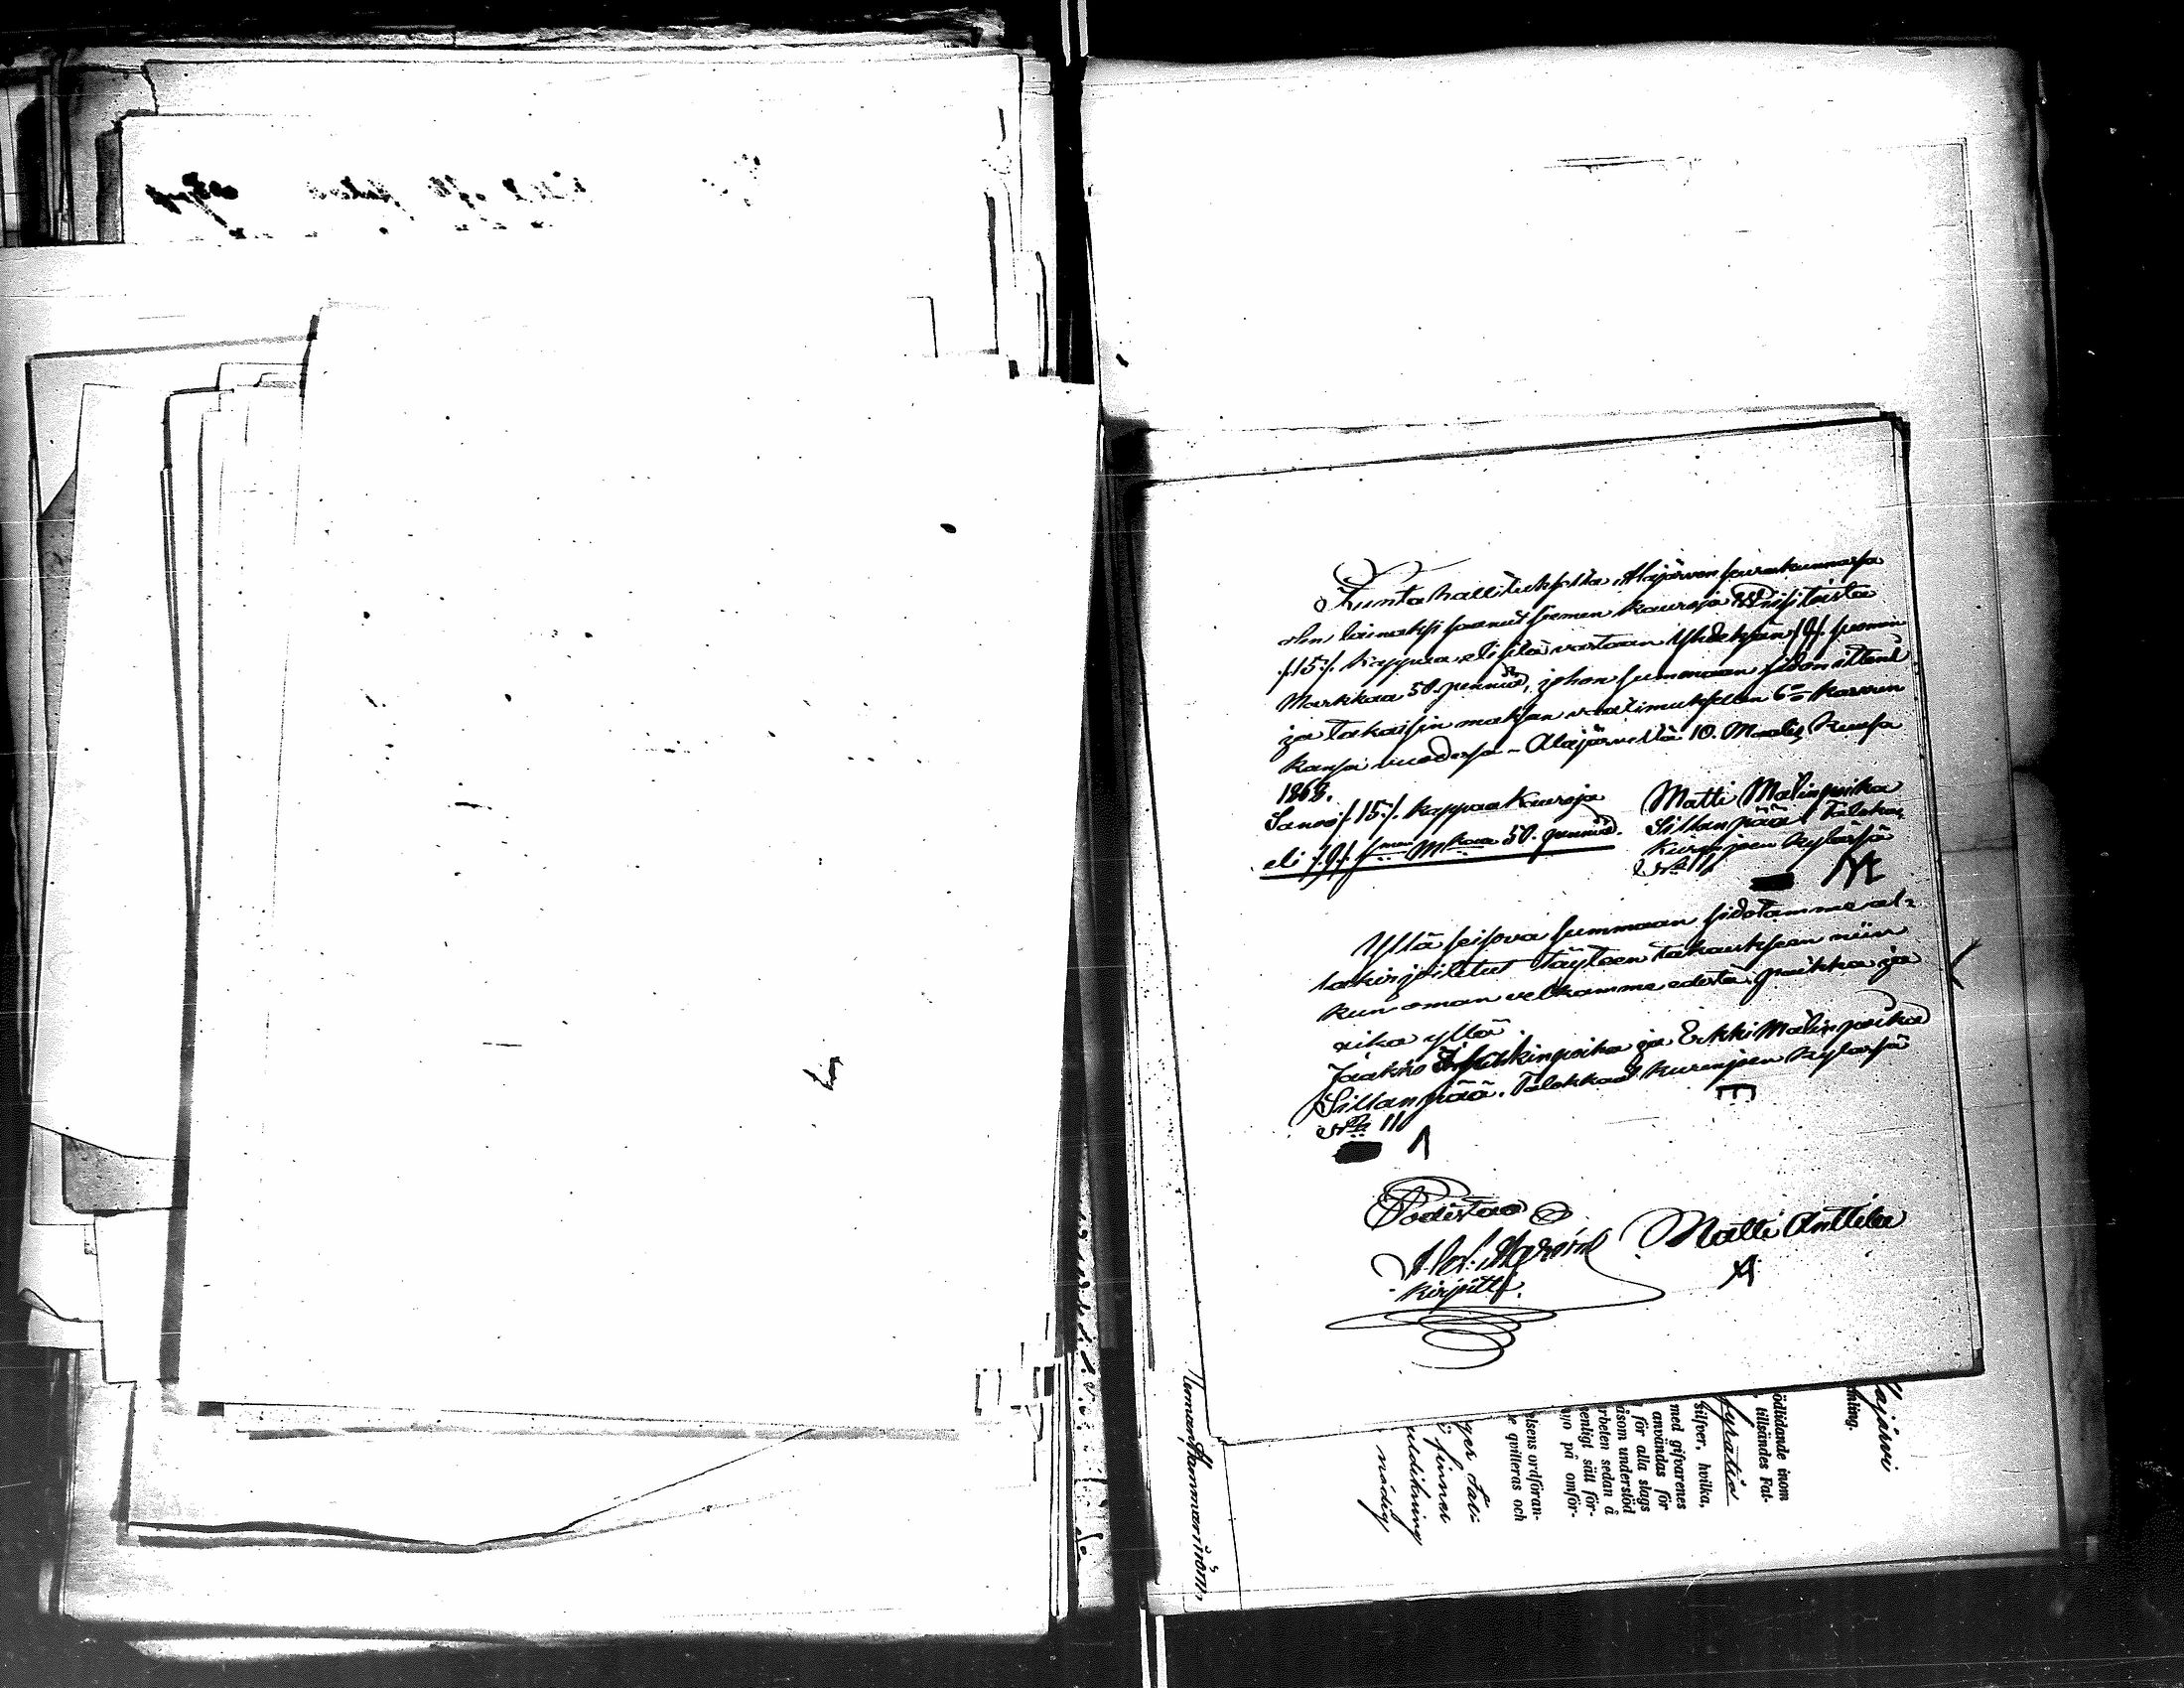 Kuntahallitukselta Alajärven seurakunnassa
olen lainaksi saanut siemen kauroja Wiisitoista
/:15:/ kappaa eli sitä vastaan Yhdeksän /:9:/ suomen
Markkaa 50. penniä, johon summaan sidon itteni
ja takaisin maksan vaatimuksen 6% kasvun
kansa vuodessa - Alajärveltä 10. Maalis Kuusa
1868.
Sanoo /:15:/ kappaa Kauroja
eli /:9:/ Smen Mkaa 50. penniä.
Matti Matinpoika
Sillanpää Talokas
Kurejoen kylässä
No 11
Yllä seisova summaan sidotamme al-
lakirjoitetut täyteen takaukseen niin
kun oman velkamme edestä, paikka ja
aika yllä.
Jaakko Erkinpoika ja Erkki Matinpoika
Sillanpää. Talokkaat Kurenjoen kylässä
No 11
Todistaa
Matti Anttila
Kirjuri.
Alajärvi
mling.
ödlidande inom
tillsändes Fat-
silfver, hvilka,
med gifvarenes
användas för
för alla slags
åsom understöd
rbeten sedan å
enligt sätt för-
på omför-
elsens ordföran-
e qvitteras och
finnes
nådig
Hammarström,